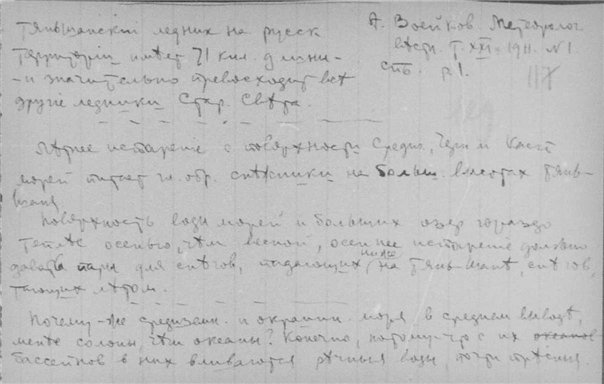 Тяньшанскій ледник на русск
территоріи имѣет 71 кил. длины -
- и значительно превосходит всѣ
другіе ледники Стар. Свѣта.
А. Воейков. Метеоролог
вѣстн. Т. XXI - 1911. N 1
стр. 1.
117
Лѣтнее испареніе с поверхности Средиз., Черн и Касп
морей питает гл. обр. снѣжники на больш. высотах Тянь-
шаня
Поверхность воды морей и больших озер гораздо
теплѣе осенью, чѣм весной, осеннее испареніе должно
давать пары для снѣгов, падающих ниже на Тянь-шанѣ, снѣгов,
тающих лѣтом.
Почему-же средиземн. и окраин. моря в среднем выводѣ,
менѣе солоны, чѣм океаны? Конечно, потому что с их океанов
бассейнов в них вливаются рѣчныя воды, почти прѣсныя.